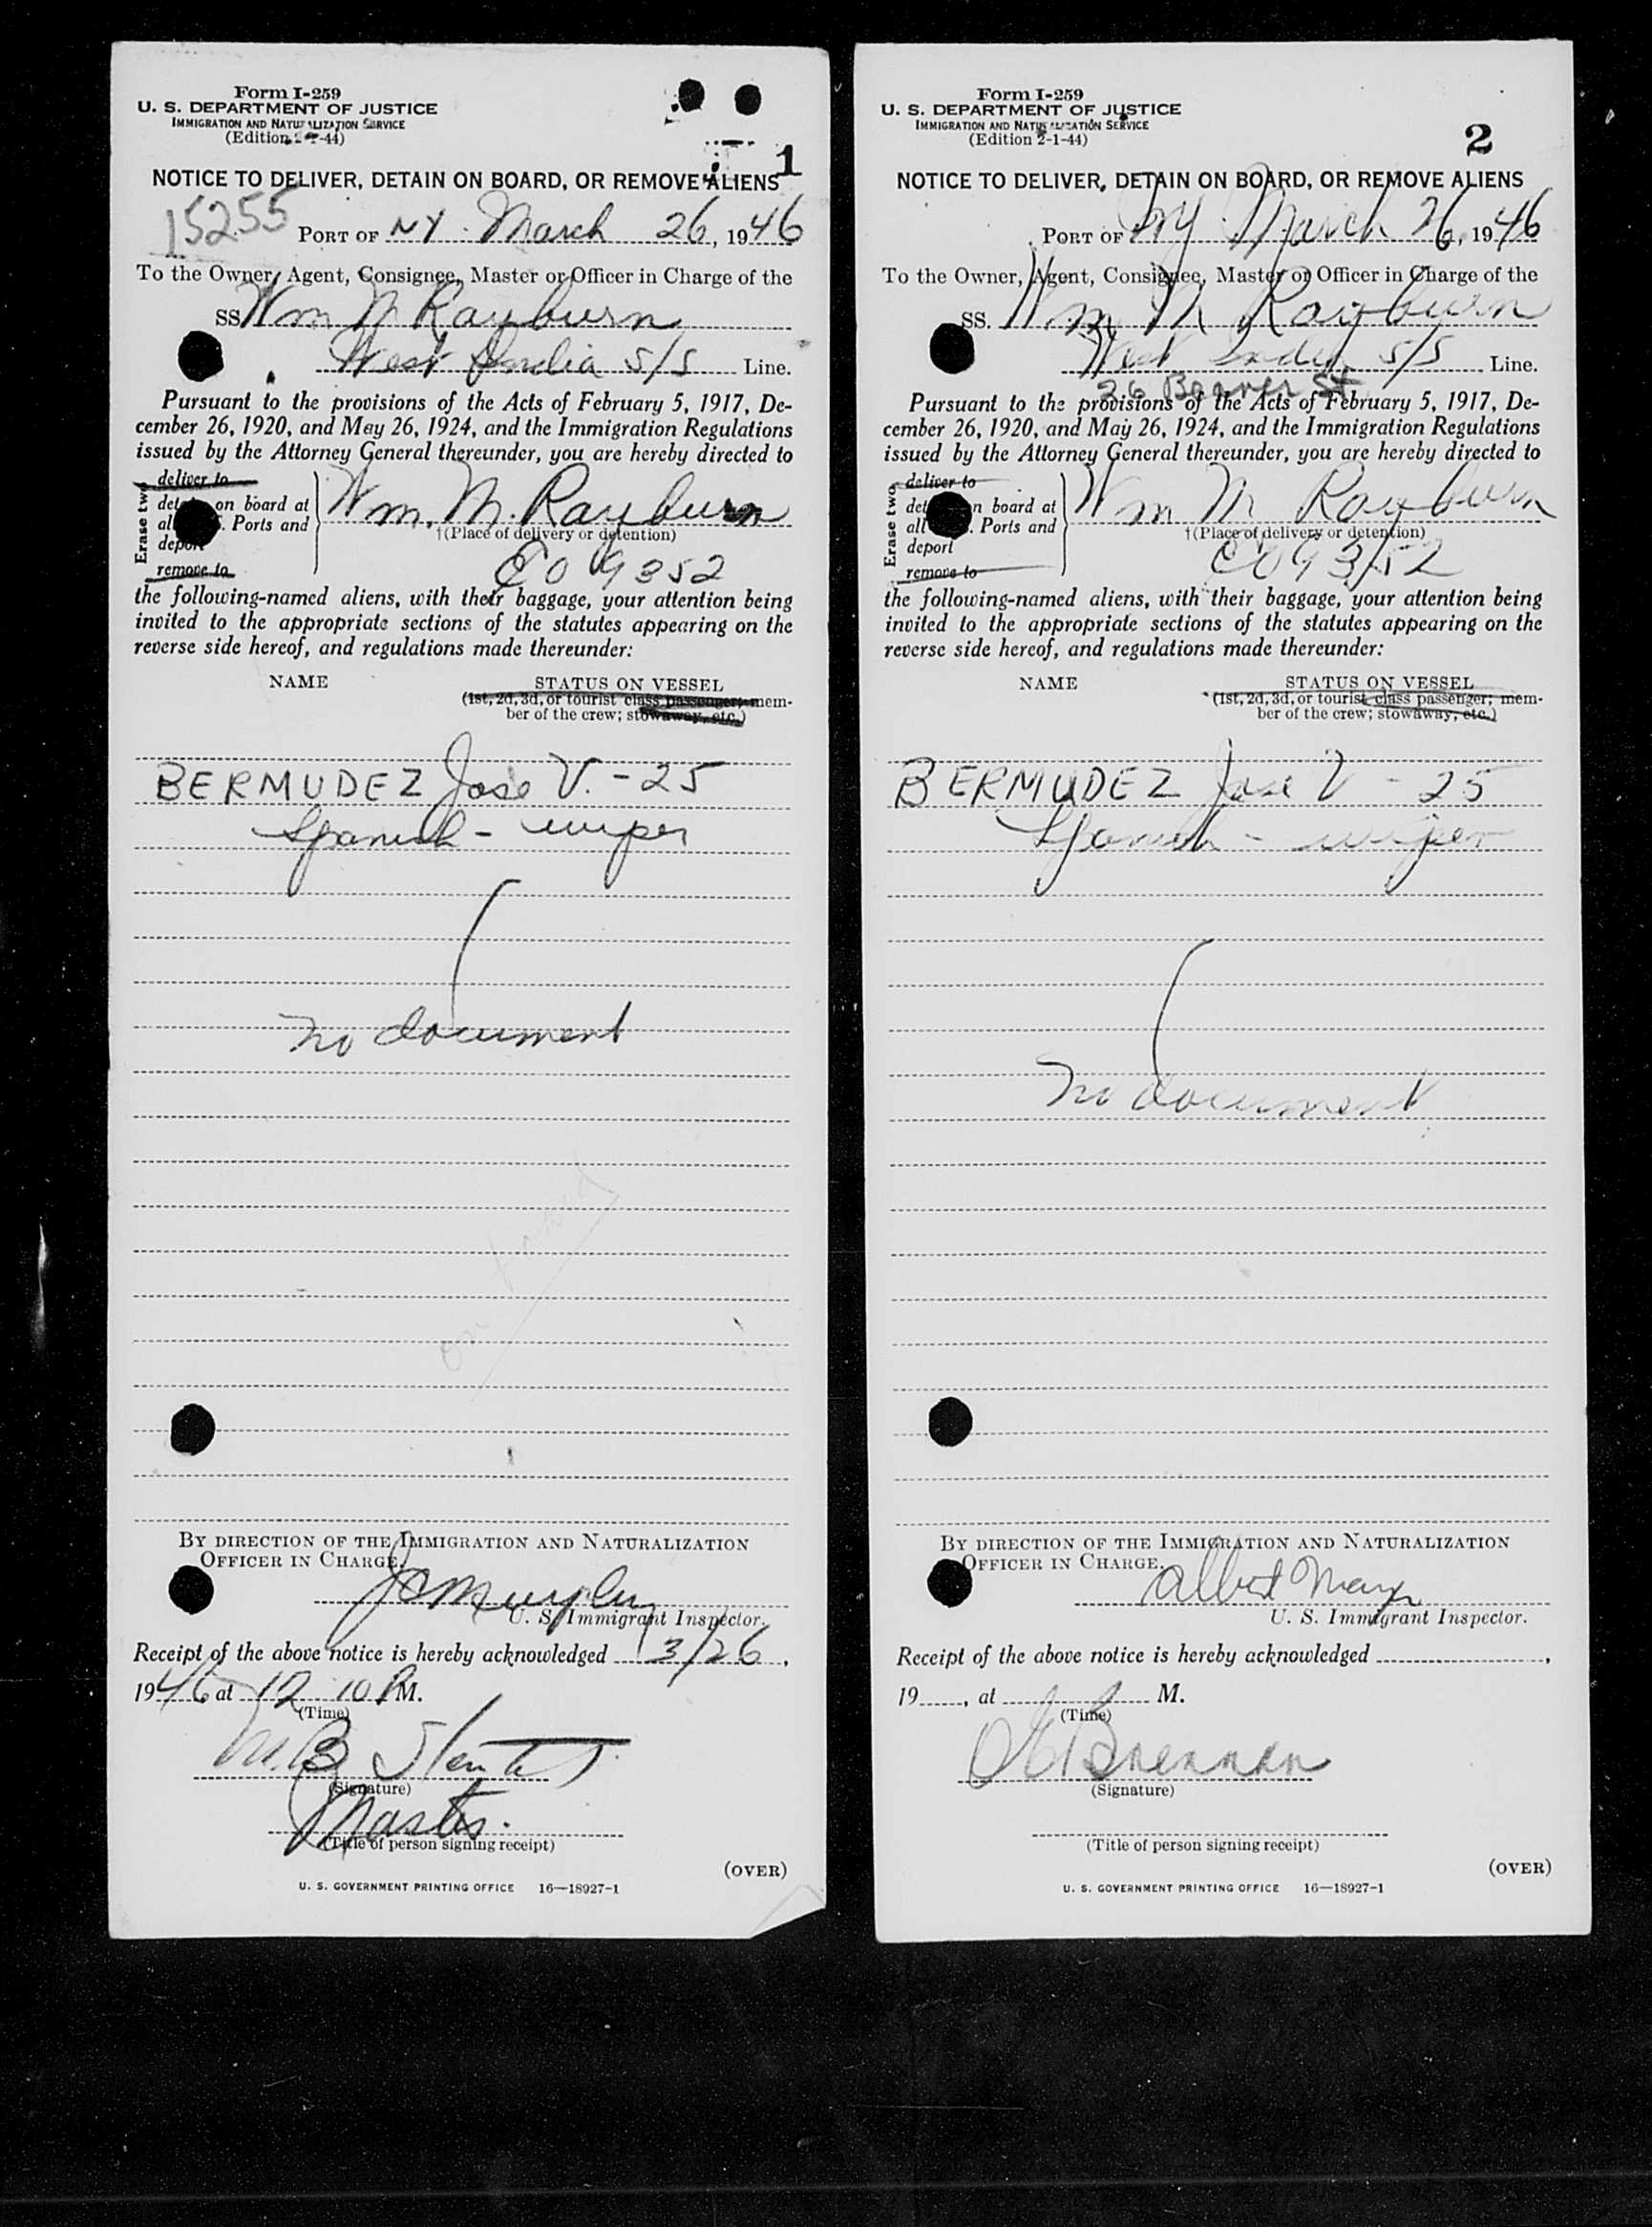 Form I-259
U. S. DEPARTMENT OF JUSTICE
IMMIGRATION AND NATURALIZATION SERVICE
(Edition 2-1-44)
1
NOTICE TO DELIVER, DETAIN ON BOARD, OR REMOVE ALIENS
15255
PORT OF NY. March 26, 1946
To the Owner, Agent, Consignee, Master or Officer in Charge of the
SS Wm M Rayburn
West India S/S Line.
Pursuant to the provisions of the Acts of February 5, 1917, De-
cember 26, 1920, and May 26, 1924, and the Immigration Regulations
issued by the Attorney General thereunder, you are hereby directed to
Erase two
deliver to
det on board at
al . Ports and
deport
remove to
Wm. M. Rayburn
†(Place of delivery or detention)
CO 9352
the following-named aliens, with their baggage, your attention being
invited to the appropriate sections of the statutes appearing on the
reverse side hereof, and regulations made thereunder:
NAME STATUS ON VESSEL
(1st, 2d, 3d, or tourist class passenger; mem-
ber of the crew; stowaway, etc.)
BERMUDEZ Jose V. - 25
Spanish - wiper
no document
BY DIRECTION OF THE IMMIGRATION AND NATURALIZATION
OFFICER IN CHARGE.
U. S. Immigrant Inspector.
Receipt of the above notice is hereby acknowledged 3/26,
1946 at 12 10 P M.
(Time)
(Signature)
Master.
(Title of person signing receipt)
(OVER)
U. S. GOVERNMENT PRINTING OFFICE 16—18927-1
Form I-259
U. S. DEPARTMENT OF JUSTICE
IMMIGRATION AND NATURALIZATION SERVICE
(Edition 2-1-44)
2
NOTICE TO DELIVER, DETAIN ON BOARD, OR REMOVE ALIENS
PORT OF NY. March 26, 1946
To the Owner, Agent, Consignee, Master or Officer in Charge of the
SS. Wm M Rayburn
West India S/S Line.
26 Beaver St.
Pursuant to the provisions of the Acts of February 5, 1917, De-
cember 26, 1920, and May 26, 1924, and the Immigration Regulations
issued by the Attorney General thereunder, you are hereby directed to
Erase two
deliver to
det n board at
all . Ports and
deport
remove to
Wm M Rayburn
†(Place of delivery or detention)
CO 9352
the following-named aliens, with their baggage, your attention being
invited to the appropriate sections of the statutes appearing on the
reverse side hereof, and regulations made thereunder:
NAME STATUS ON VESSEL
(1st, 2d, 3d, or tourist class passenger; mem-
ber of the crew; stowaway, etc.)
BERMUDEZ Jose V - 25
Spanish - wiper
no document
BY DIRECTION OF THE IMMIGRATION AND NATURALIZATION
OFFICER IN CHARGE.
Albert
U. S. Immigrant Inspector.
Receipt of the above notice is hereby acknowledged ,
19 , at M.
(Time)
Brennan
(Signature)
(Title of person signing receipt)
(OVER)
U. S. GOVERNMENT PRINTING OFFICE 16—18927-1